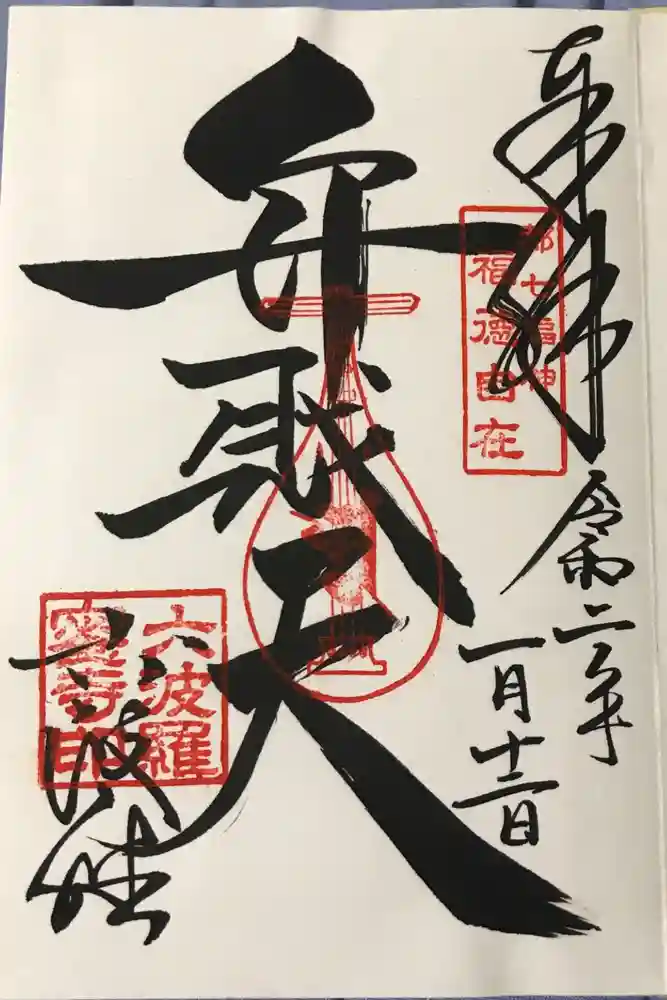 奉拝
都七福神
福徳自在
令和二年
一月十二日
弁財天
六波羅
蜜寺印
六波羅